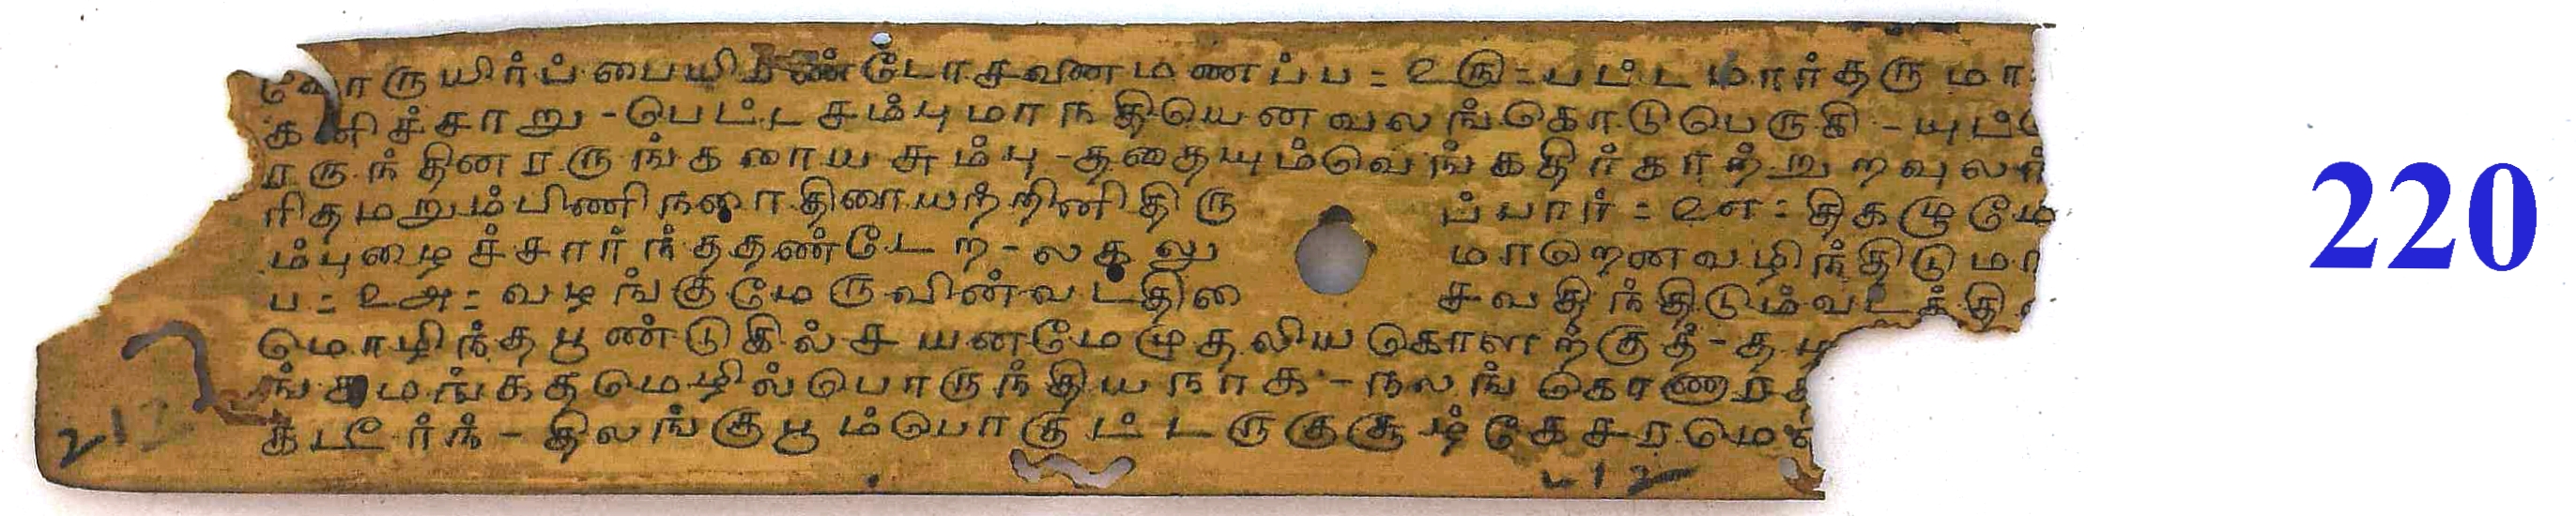 ருயிர்ப்பையிரண்டோசவணமணப்ப = ௨௫ = பட்டமார்தருமா
கனிச்சாறு - பெட்டசம்புமாநதியெனவலங்கொடுபெருகி - யுட்
ரருந்தினரருங்களாயசம்பு - ததையும்வெங்கதிர்காற்றுறவுலர்
ரிதமறும்பிணிநளாதிளையத்தினிதிரு ப்பார் = ௨௭ = திகழுமே
ம்புழைச்சார்ந்ததண்டேற - லகலு மாறெனவழிந்திடுமா
ப = ௨௮ = வழங்குமேருவின்வடதிசை சவதிந்திடும்வடக்தி
மொழிந்தபூண்டுகில்சயனமேமுதலியகொளற்குதீ - த
ங் மங்கதமெழில்பொருந்தியநாக - நலங்
திலங்குபூம்பொகுட்டருகுசூழ்கேசரமெ
213
220